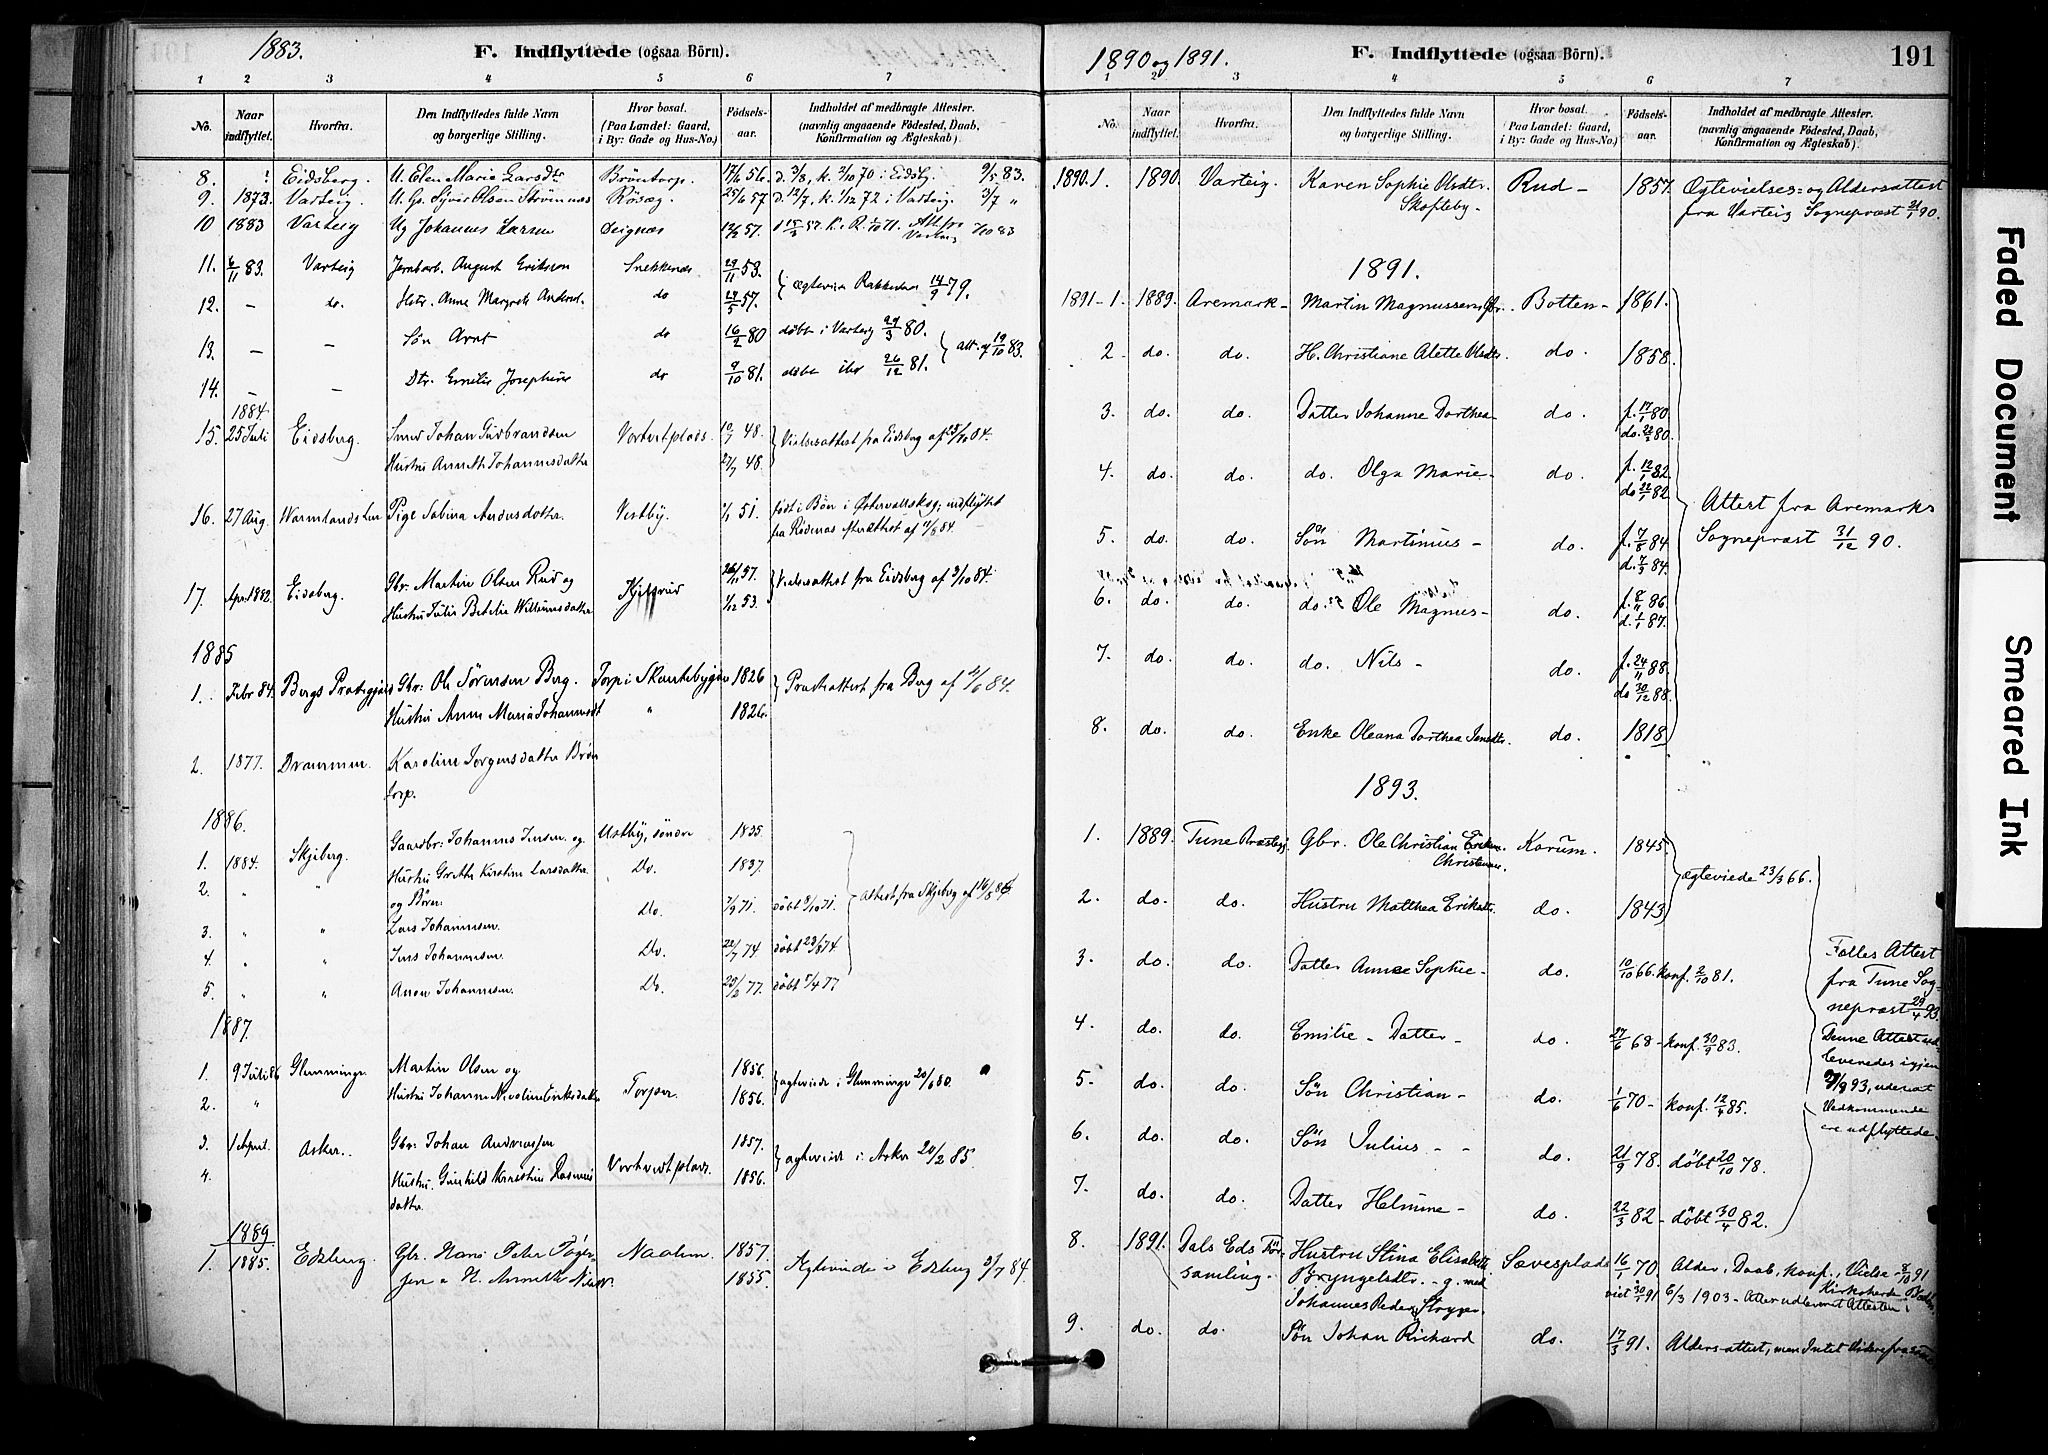 1883.
F. Indflyttede (ogsaa Börn).
1 2 3 4 5 6 7
No.
Naar indflyttet.
Hvorfra.
Den Indflyttedes fulde Navn og borgerlige Stilling.
Hvor bosat. (Paa Landet: Gaard, i By: Gade og Hus-No.)
Födsels-aar.
Indholdet af medbragte Attester. (navnlig angaaende Födested, Daab, Konfirmation og Ægteskab).
8. Eidsberg. U. Elen Marie Larsdtr Bröntorp. 17/6 56. d. 3/8, k. 2/10 70 i Eidsbg. 9/5 83.
9. 1873. Varteig. Olsen Rösæg. 25/6 57 d. 12/7, k. 1/12 72 i Varteig. 3/7 "
10 1883 Varteig Ug Johannes Larsen 12/2 57. 7/10 83
11. 6/11 83. Varteig Jernbarb. August Erikson Snekkenes 29/11 53.
12. — do. Hstr. Anne Margrete Andersd. do 27/5 57. } ægtevia Rakkestad 14/9 79.
13. — — Søn Arnt do 16/2 80 døbt i Varteig 29/3 80.
14. — — Dtr. Emilie Josephine do 9/10 81. døbt ibr 26/12 81. } att. af 19/10 83.
1884.
15. 25 Juli Eidsberg. Smed Johan Gudbrandsen Vortvetplads. 10/7 48.
Hustru Anneth Johannesdatter 27/7 48. } Vielsesattest fra Eidsberg af 13/10 84.
16. 27 Aug. Warmlands Len Pige Sabina Andersdatter. Vestby. 51. født i Bön i Østervallskog; indflyttet
fra Rödenæs Attest af 11/8 84
17. Apr. 1882. Eidsberg. Gbr. Martin Olsen Rud og Kjilsrud 57.
Hustru Julie Betelie Williumsdatter 1/12 53. } Vielsesattest fra Eidsberg af 3/10 84.
1885
1. Febr 84. Bergs Prestegjæld Gbr: Ole Sörensen Berg. Torp i Skantebygden 1826
Hustru Anne Maria Johannesdt " 1826. } Presteattest fra Berg af 84.
2. 1877. Drammen. Karoline Jörgensdatter Brön
torp.
1886.
1. 1884. Skjeberg. Gaardbr: Johannes Jensen og Ustby, söndre 1835.
2. " " Hustru Grethe Kirstine Larsdatter. Do. 1837.
og Börn:
3. " " Lars Johannesen. Do. 7/9 71. döbt 8/10 71.
4. " " Jens Johannesen. Do. 22/7 74 döbt 23/8 74
5. " " Anon Johannesen. Do. 20/2 77. döbt 5/4 77
Attest fra Skjeberg af 16/8 86
1887.
1. 9 Juli 86 Glemminge Martin Olsen og 1856.
2. " Hustru Johanne Nicoline Eriksdatter Torper. 1856. } ægteviede i Glemminge 20/6 80.
3. 1 April. Asker. Gbr: Johan Andreassen 1857.
4. Hustru. Gunhild Kirstine Rasmus Vortvetplads. 1856. } ægteviede i Asker 20/2 85.
datter.
1889
1. 1885. Edsberg. Gbr. Hans Peter Töger Naalum. 1857.
sen o H. Annette Nilsdtr. 1855. Ægteviede i Edsberg 3/7 84.

1890 og 1891.
F. Indflyttede (ogsaa Börn).
191
1 2 3 4 5 6 7
No.
Naar indflyttet.
Hvorfra.
Den Indflyttedes fulde Navn og borgerlige Stilling.
Hvor bosat. (Paa Landet: Gaard, i By: Gade og Hus-No.)
Födsels-aar.
Indholdet af medbragte Attester. (navnlig angaaende Födested, Daab, Konfirmation og Ægteskab).
1890. 1. 1890. Varteig. Karen Sophie Olsdtr. Rud — 1857. Ægtevielses- og Aldersattest
Skofteby. fra Varteig Sognepræst 21/1 90.
1891.
1891 - 1. 1889. Aremark — Martin Magnussen Gbr. Botten — 1861.
2 do. do. H. Christiane Alette Olsdtr. do. 1858.
3. do. do. Datter Johanne Dorthea do. f. 17/1 80
do. 22/2 80.
4. do. do. do. Olga Marie — do. f. 12/1 82.
do 22/1 82.
5. do. do. Sön Martinius — do. f. 7/8 84
d. 7/3 84.
6. do. do. do. Ole Magnus — do. f. 8/11 86
d. 1/1 87.
7. do. do. do. Nils — do. f. 24/11 88
do 30/12 88.
8. do. do. Enke Oleana Dorthea Jensdtr. do. 1818
Attest fra Aremarks
Sognepræst 31/12 90.
1893.
1. 1889. Tune Præstegj. Gbr. Ole Christian Eriksen Korum. 1845.
Christensen.
2. do. do. Hustru Matthea Eriksdtr. do. 1843. } ægteviede 23/3 66.
3. do. do. Datter Anne Sophie — do. 10/10 66. konf. 2/10 81.
4. do. do. Emilie — Datter — do. 27/6 68 — konf. 30/9 83.
5. do. do. Sön Christian — do. 1/6 70 — konf. 12/4 85.
6. do. do. Sön Julius — — do. 21/9 78. döbt 20/10 78.
7. do. do. Datter Helmine — do. 22/3 82 — döbt 30/4 82.
Fælles Attest
fra Tune Sog-
nepræst 29/4 93.
Denne Attest ud-
leveredes igjen
93, uden at
Vedkommende
ere udflyttede.
8. 1891. Dals Eds För- Hustru Stina Elisabeth Sævesplads 16/1 70. Alder, Daab, konf., Vielse 8/10 91
samling. Bryngelsdtr. — g. med viet 30/1 91 Kirkoherde
Johannes Peder Stryger. 6/3 1903 — Atter udleveret Attesten.
9. do. do. Sön Johan Richard do. 17/3 91. Aldersattest, men Intet videre fra
Faded Document
Smeared Ink